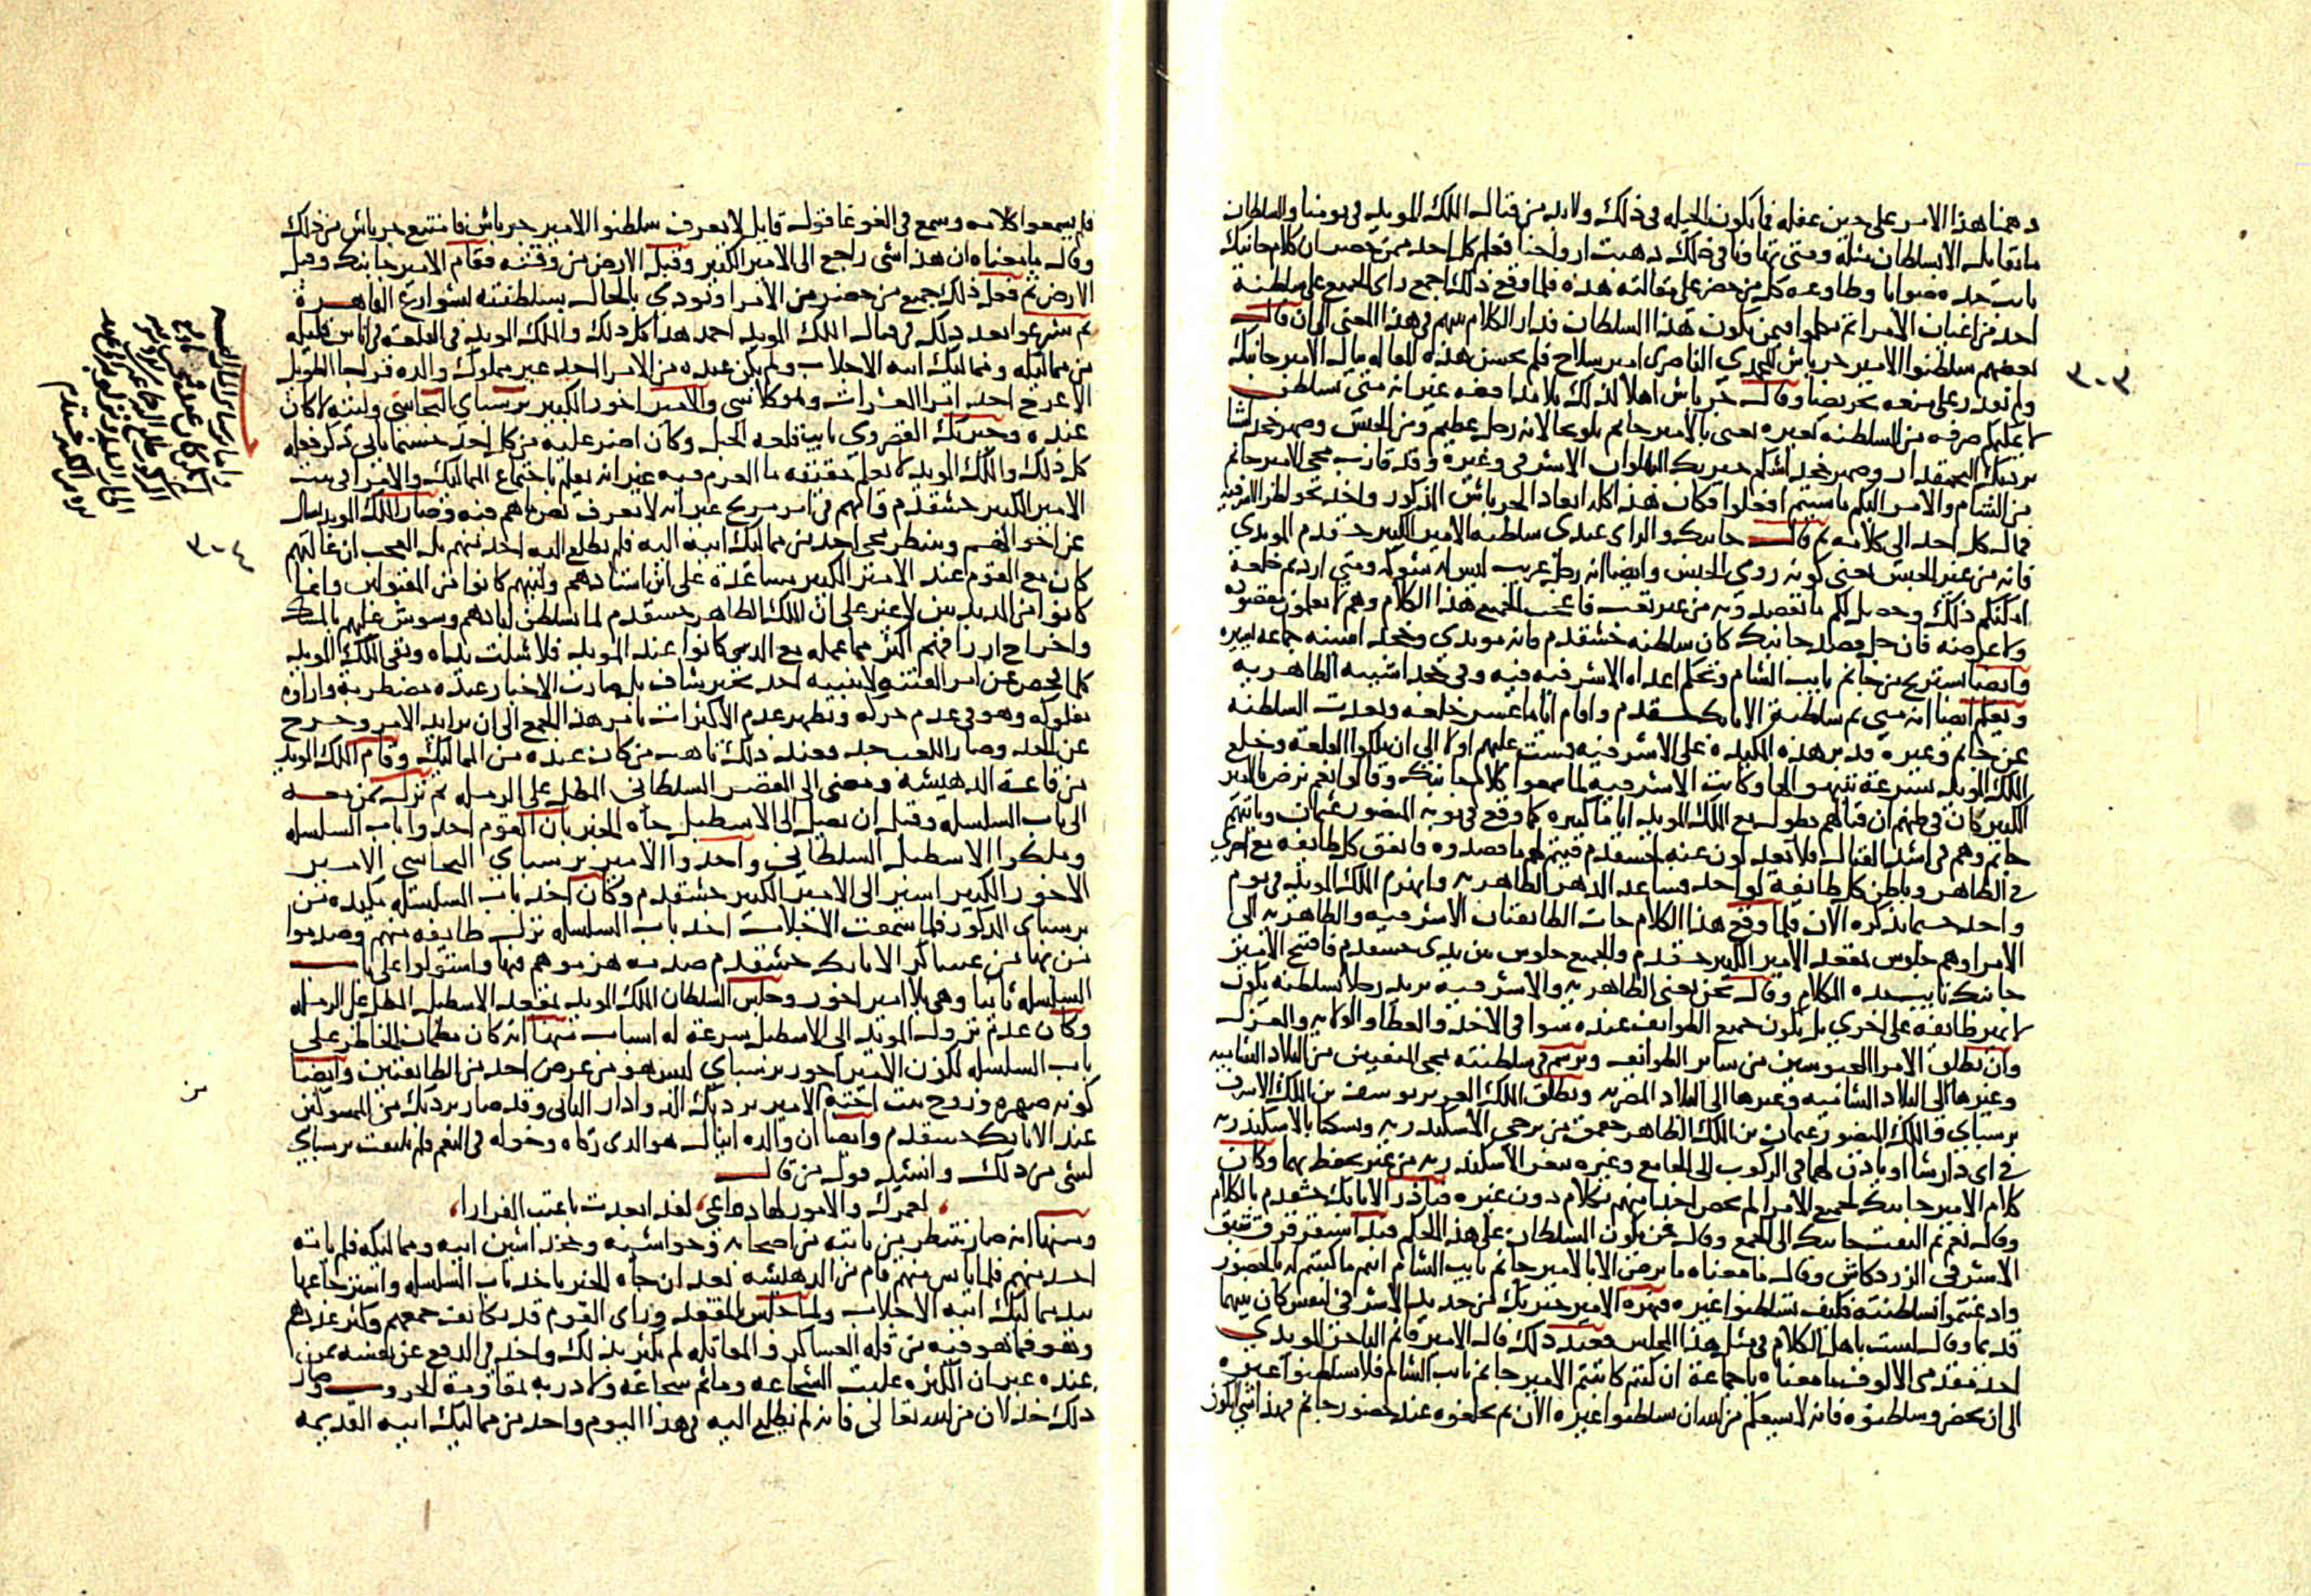 دهمنا هذا الامر على حين غفله فما تكون الحيله في ذلك ولابد من قتال الملك المويد في يومنا والسلطان
ما يقابله الا سلطان مثله ومتى تهاونا في ذلك ذهبت ارواحنا فعلم كل احد ممن حضر ان كلام جانبك
نايب جده صوابا وطاوعه كل من حضر على مقالته هذه فلما وقع ذلك اجمع راى الجميع على سلطنة
احد من اعيان الامرا ثم تكلموا فيمن يكون هذا السلطان فدار الكلام بينهم في هذا المعنى الى ان قال
بعضهم سلطنوا الامير جرباش المحمدي الناصري امير سلاح فلم يحسن هذه المقاله ببال الامير جانبك
ولم يقدر على منعه تحريضا وقال جرباش اهلا لذلك بلا مدافعه غير انه متى تسلطن
لا يمكنكم صرفه من السلطنه بغيره يعني بالامير جانم يلوح الانه رجل عظيم ومن الجنس وصهر خجداشنا
بردبك البجمقدار وصهر خجداشكم خيربك البهلوان الاشرفي وغيره وقد قارب مجي الامير جانم
من الشام والامر اليكم ما شيتم افعلوا فكان هذا كله ابعادا لجرباش المذكور واخذ بخواطر الاشرفيه
فمال كل احد الى كلامه ثم قال جانبك والراى عندى سلطنه الامير الكبير خشقدم المويدي
فانه من غير الجنس يعني كونه رومي الجنس وايضا انه رجل غريب ليس له شوكه ومتى اردتم خلعه
امكنكم ذلك وحصل لكم ما تقصدونه من غير تعب فاعجب الجميع هذا الكلام وهم لا يعلمون مقصوده
ولا غرضه فان جل قصد جانبك كان سلطنه خشقدم فانه مويدي وخجداشيته جماعه يسيره
وايضا يستريح من جانم نايب الشام وتحكم اعداه الاشرفيه فيه وفي خجداشيته الظاهريه
ويعلم ايضا انه متى تم سلطنة الاتابك خشقدم واقام اياما عسر خلعه وبعدت السلطنه
عن جانم وغيره فدبر هذه المكيده على الاشرفيه فمشت عليهم اولا الى ان ملكوا القلعه وخلع
الملك المويد بسرعة تنبهوا لها وكانت الاشرفيه لما سمعوا كلام جانبك وقالوا نعم نرضى بالامير
الكبير كان في ظنهم ان قتالهم يطول مع الملك المويد اياما كثيره كما وقع في نوبه المنصور عثمان وياتيهم
جانم وهم في اشد القتال فلا يعدلون عنه لخشقدم فيتم لهم ما قصدوه فاتفق كل طايفه مع اخرى
في الظاهر وباطن كل طايفة لواحد فساعد الدهر الظاهريه وانهزم الملك المويد في يوم
واحد حسبما نذكره الان فلما وقع هذا الكلام جات الطايفتان الاشرفيه والظاهريه الى
الامرا وهم جلوس بمقعد الامير الكبير خشقدم والجميع جلوس بين يدى خشقدم فافتتح الامير
جانبك نايب جده الكلام وقال نحن يعني الظاهريه والاشرفيه نريد رجلا نسلطنه يكون
لا يميز طايفه على اخري بل يكون جميع الطوايف عنده سوا في الاخذ والعطا والولايه والعزل
وان يطلق الامرا المحبوسين من ساير الطوايف ويرسم في سلطنته بمجى المنفيين من البلاد الشاميه
وغيرها الى البلاد الشاميه وغيرها الى البلاد المصريه ويطلق الملك العزيز يوسف بن الملك الاشرف
برسباي والملك المنصور عثمان بن الملك الظاهر جقمق من برجي الاسكندريه ويسكنا بالاسكندريه
في اى دار شا او ياذن لهما في الركوب الى الجامع وغيره بثغر الاسكندريه من غير تحفظ بهما وكان
كلام الامير جانبك لجميع الامرا لم يخص احدا منهم بكلام دون غيره فبادر الاتابك خشقدم بالكلام
وقال نعم ثم التفت جانبك الى الجمع وقال نحن نكون السلطان على هذا الحكم فبدا سنقر قرق شبق
الاشرفي الزردكاش وقال ما معناه ما نرضى الا بالامير جانم نايب الشام انتم ما كتبتم له بالحضور
واذعنتم لسلطنته فكيف تسلطنوا غيره فنهره الامير خيربك من حديد الاشرفي لنفس كان بينهما
قديما وقال لست باهل الكلام في مثل هذا المجلس فعند ذلك قال الامير قانم التاجر المويدي
احد مقدمي الالوف ما معناه يا جماعة ان كنتم كاتبتم الامير جانم نايب الشام فلا تسلطنوا غيره
الى ان يحضر وسلطنوه فانه لا يسعكم من الله ان تسلطنوا غيره الان ثم تخلعوه عند حضور جانم فهذا شي لا يكون
٣٠٣
فلم يسمعوا كلامه وسمع في الغوغا قول قايل لا يعرف سلطنوا الامير جرباش فامتنع جرباش من ذلك
وقال ما معناه ان هذا شي راجع الى الامير الكبير وقبل الارض من وقته فقام الامير جانبك وقبل
الارض ثم فعل ذلك جميع من حضر من الامرا ونودي بالحال بسلطنته بشوارع القاهرة
ثم شرعوا بعد ذلك في قتال الملك المويد احمد هذا كل ذلك والملك المويد في القلعة في اناس قليله
من مماليكه ومماليك ابيه الاجلاب ولم يكن عنده من الامرا احد غير مملوك والده قراجا الطويل
الاعرج احد امرا العشرات وهو كلا شي والامير اخور الكبير برسباي البجاسي وليته لا كان
عنده وخيربك القصروي نايب قلعه الجبل وكان اضر عليه من كل احد حسبما ياتى ذكر فعله
كل ذلك والملك المويد لا يعلم حقيقه ما العزم فيه غير انه يعلم باجتماع المماليك والامرا في بيت
الامير الكبير خشقدم وانهم في امر مريج غير انه لا يعرف نص ما هم فيه وصار الملك المويد يسال
عن احوالهم وينتظر مجى احد من مماليك ابيه اليه فلم يطلع اليه احد منهم بل العجب ان غالبهم
كان مع القوم عند الامير الكبير مساعدة على ابن استادهم وليتهم كانوا من المقبولين وانما
كانوا من المذبذبين لا غير على ان الملك الظاهر خشقدم لما تسلطن ابادهم وشوش عليهم بالمسك
واخراج ارزاقهم اكثر مما عمله مع الذين كانوا عند المويد فلا شلت يداه وبقى الملك المويد
كلما فحص عن امر الفتنه لا ينبيه احد بخبر شاف بل صارت الاخبار عنده مضطربة واراوه
مفلوكه وهو في عدم حركه ويظهر عدم الاكتراث بامر هذا الجمع الى ان تزايد الامر وخرج
عن الحد وصار اللعب جد فعند ذلك تاهب من كان عنده من المماليك وقام الملك المويد
من قاعة الدهيشه ومضى الى القصر السلطاني المطل على الرميله ثم نزل بمن معه
الى باب السلسله وقبل ان يصل الى الاسطبل جاه الخبر بان القوم اخذوا باب السلسله
وملكوا الاسطبل السلطاني واخذوا الامير برسباي البجاسي الامير
الاخور الكبير اسير الى الامير الكبير خشقدم وكان اخذ باب السلسله مكيده من
برسباي المذكور فلما سمعت الاجلاب اخذ باب السلسله نزل طايفه منهم وصدموا
من بها من عساكر الاتابك خشقدم صدمه هزموهم فيها واستولوا على باب
السلسله ثانيا وهي بلا امير اخور وجلس السلطان الملك المويد بمقعد الاسطبل المطل على الرميله
وكان عدم نزول المويد الى الاسطبل بسرعة له اسباب منها انه كان مطمان الخاطر على
باب السلسله لكون الامير اخور برسباي ليس هو من غرض احد من الطايفتين وايضا
كونه صهره وزوج بنت اخته الامير بردبك الدوادار الثاني وقد صار بردبك من الممسوكين
عند الاتابك خشقدم وايضا ان والده اينال هو الذى رقاه وخوله في النعم فلم يلتفت برسباي
لشي من ذلك وانشد قول من قال
لعمرك والامور لها دواعي لقد ابعدت يا عتب الفرارا
ومنها انه صار ينتظر من ياتيه من اصحابه وحواشيه وخجداشين ابيه ومماليكه فلم ياته
احد منهم فلما يئس منهم قام من الدهيشه بعد ان جاه الخبر باخذ باب السلسله واسترجاعها
بيد مماليك ابيه الاجلاب ولما جلس بالمقعد وراى القوم قد تكاثف جمعهم وكثر عددهم
وهو فيما هو فيه من قله العساكر والمقاتله لم يكترث بذلك واخذ في الدفع عن نفسه بمن
عنده غير ان الكثره غلبت الشجاعه وما ثم شجاعه ولا دربه بمقاومة الحروب وصار
ذلك خذلان من الله تعالى فانه لم يطلع اليه في هذا اليوم واحد من مماليك ابيه القديمه
٣٠٤
من